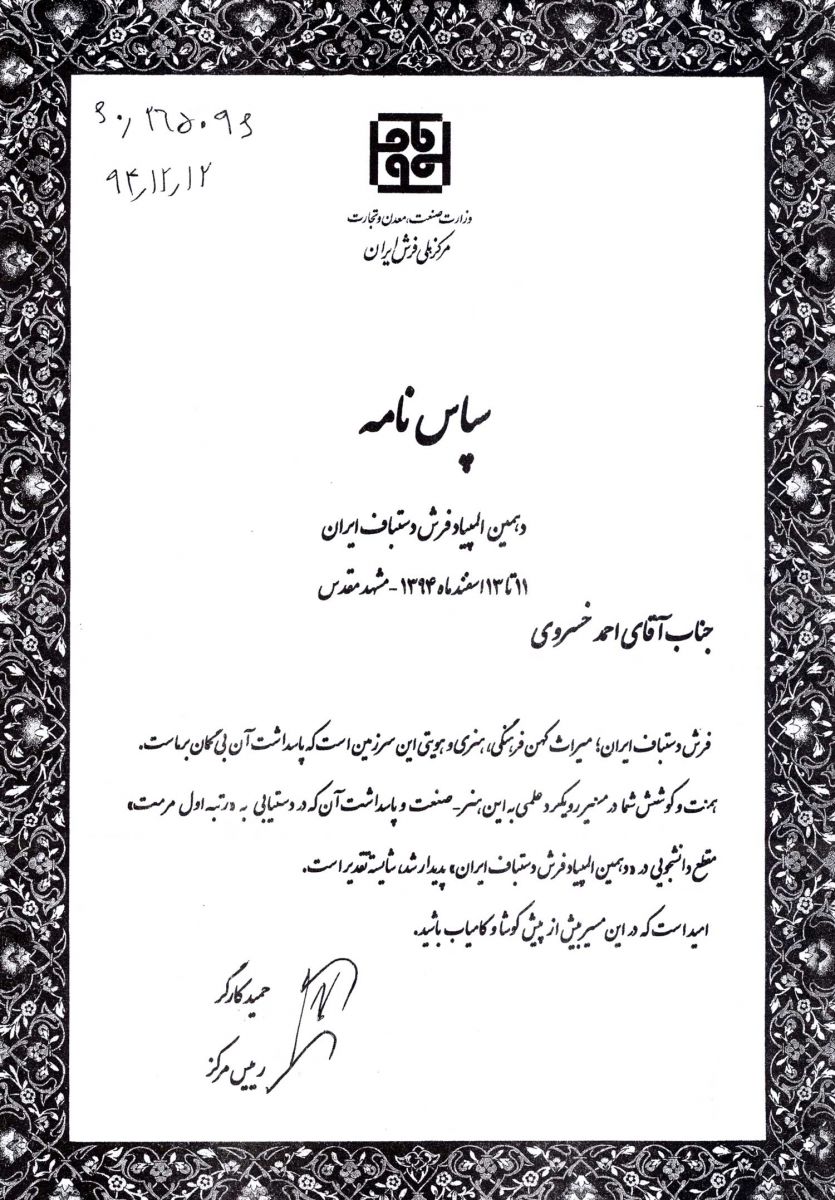 ۶۰/۲۶۵۰۹۶
۹۴/۱۲/۱۲
وزارت صنعت، معدن و تجارت
مرکز ملی فرش ایران
سپاس نامه
دهمین المپیاد فرش دستباف ایران
۱۱ تا ۱۳ اسفند ماه ۱۳۹۴ - مشهد مقدس
جناب آقای احمد خسروی
فرش دستباف ایران؛ میراث کهن فرهنگی، هنری و هویتی این سرزمین است که پاسداشت آن بی گمان بر ماست.
همت و کوشش شما در مسیر رویکرد علمی به این هنر - صنعت و پاسداشت آن که در دستیابی به «رتبه اول مرمت»
مقطع دانشجویی در «دهمین المپیاد فرش دستباف ایران» پدیدار شد، شایسته تقدیر است.
امید است که در این مسیر بیش از پیش کوشا و کامیاب باشید.
حمید کارگر
رییس مرکز